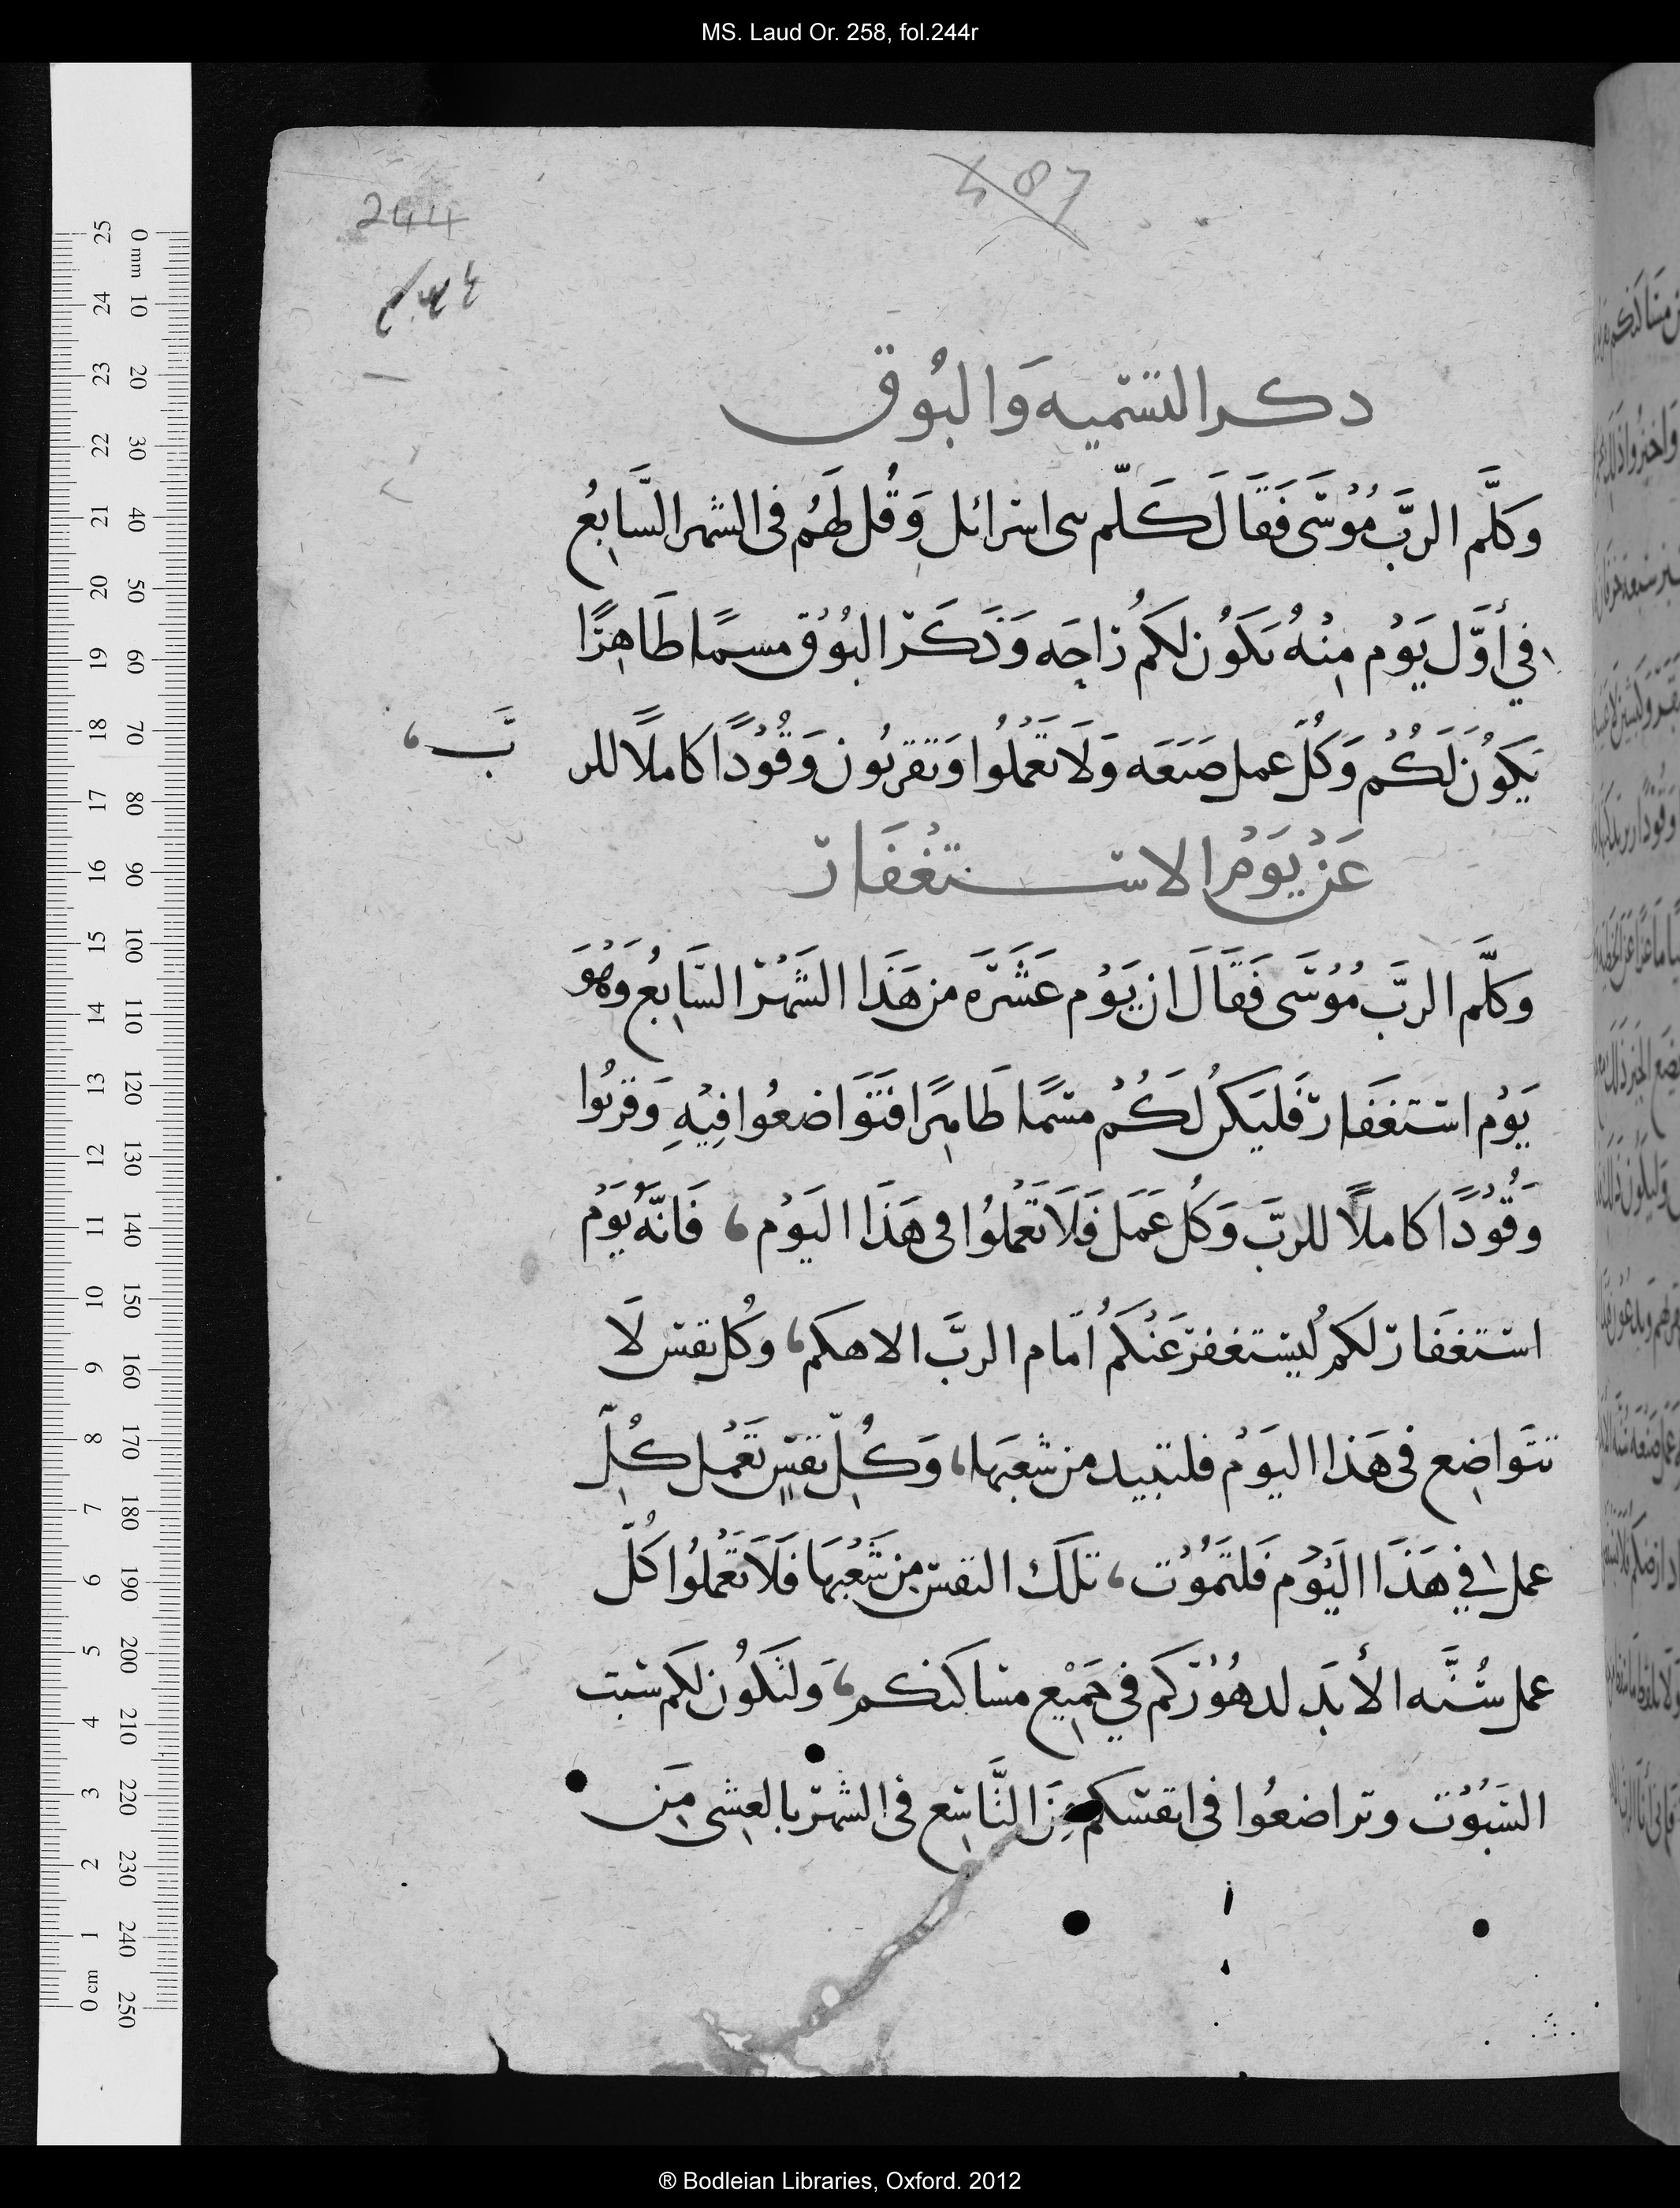 MS. Laud Or. 258, fol.244r
487
244
دكر التسميه وَالبُوق
وكلَّم الربَّ مُوْسَى فَقَالَ كَلّم بنى اسرائل وَقُل لهَمُ فى الشهر السَّابِعُ
في أوَّل يَوُم مِنْهُ يكَوُن لكمُ رَاحَه وَذَكَر البُوُق مسمًا طَاهِرًا
يَكوُن لَكُمُ وَكُلّ عمل صَنعَه وَلَا تَعْمَلُوا وَتقربُون وَقُوُدًا كاملًا للربَّ،
عَنْ يَوَمُ الاستغُفَار
وكلَّم الربَّ مُوُسَى فَقَالَ ان يَوُم عَشَرَه من هَذَا الشَهْر السَابِعُ وَهُوَ
يَوُم استغَفَار فَليَكنُ لَكُمُ مسمًا طَاهِرًا فتَوَاضعُوا فِيْهِ وَقربُوا
وَقُوُدًا كاملًا للربَّ وَكُل عَمَل فَلَا تَعْمَلُوا فى هَذَا اليَوُم، فَانَّهُ يَوَمُ
استغفَار لكم ليُستغفر عَنْكمُ أمَام الربَّ الاهكم، وكُل نفس لَا
تتَواضِع فى هَذا اليَوُم فلتبيد من شعبَها، وَكُلّ نفسٍ تَعْمل كُلّ
عمل في هَذَا اليَوُم فَلتَمُوُت، تلَك النفس مِن شَعْبهَا فَلَا تَعْملُوا كُلّ
عمل سُنَّه الأبَدِ لدهُوُركم في جَميْع مسَاكنكم، وَلتكَوُن لكم سَبت
السَبُوُت وتراضعُوا فى انفسكم مِنَ التَّاسِع فى الشهر بالعِشى مِنَ
25 24 23 22 21 20 19 18 17 16 15 14 13 12 11 10 9 8 7 6 5 4 3 2 1 0 cm
0 mm 10 20 30 40 50 60 70 80 90 100 110 120 130 140 150 160 170 180 190 200 210 220 230 240 250
® Bodleian Libraries, Oxford. 2012